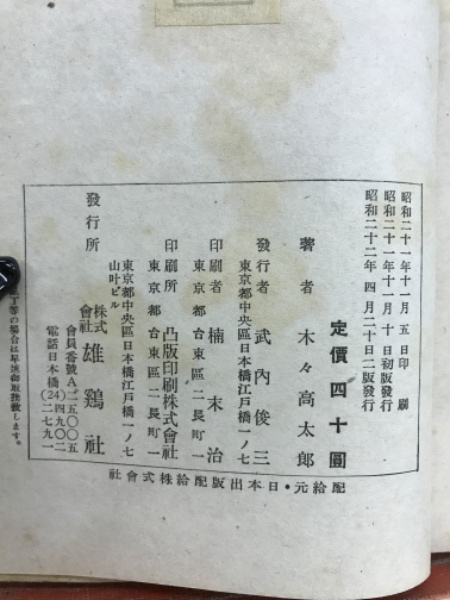 昭和二十一年十一月五日印刷
昭和二十一年十一月十日初版發行
昭和二十二年四月二十日二版發行
定價四十圓
著者 木々高太郎
發行者 武內俊三
東京都中央區日本橋江戸橋一ノ七
印刷者 楠末治
東京都台東區二長町一
印刷所 凸版印刷株式會社
東京都台東區二長町一
東京都中央區日本橋江戸橋一ノ七
山叶ビル
發行所 株式會社 雄鷄社
會員番號A二五〇〇五
電話日本橋24(四九〇二
二七九一
配給元・日本出版配給株式會社
丁等の場合は早速御取換致します。